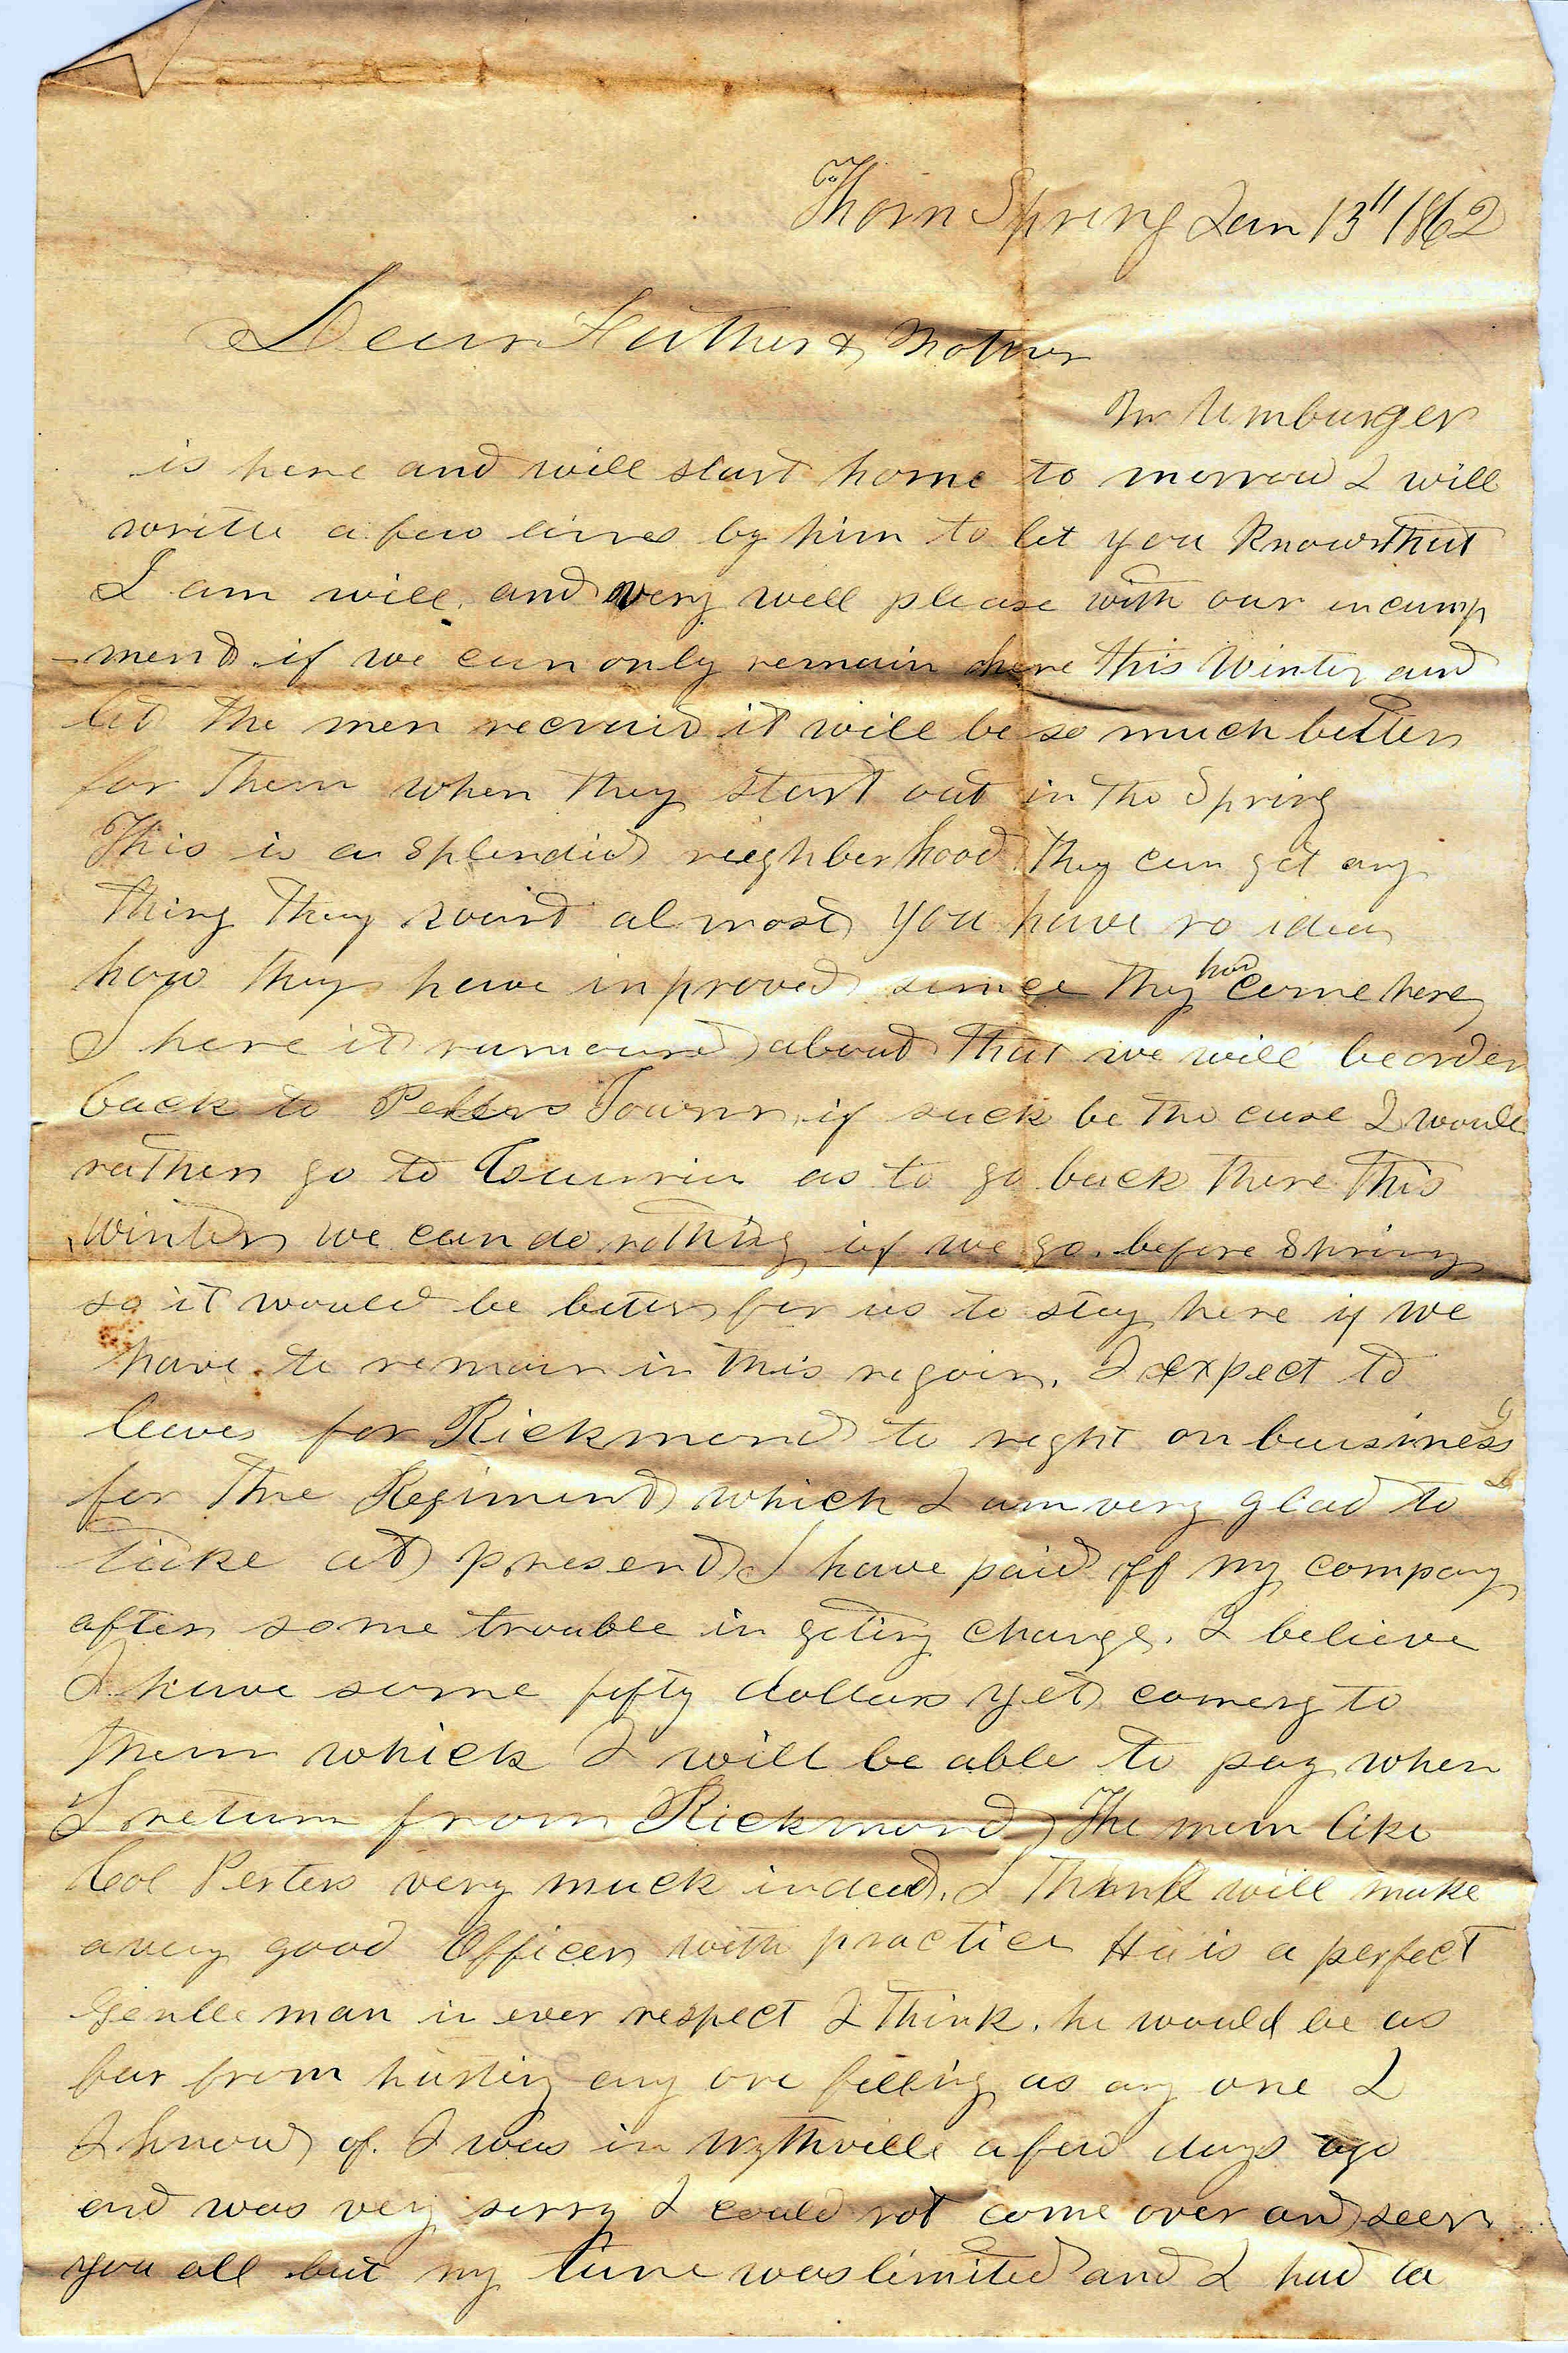 Thorn Spring Jan 13" 1862
Dear Father & Mother
Mr Umburger
is here and will start home to morrow I will
write a few lines by him to let you know that
I am will and very well please with our incamp
-ment if we can only remain here this Winter and
let the men recruit it will be so much better
for them when they start out in the Spring
This is a splendid neighberhood they can get any
thing they want almost you have no idea
how they have inproved since they had come here
I here it rumoured about that we will be order
back to Peters Town if such be the case I would
rather go to as to go back there this
winter we can do nothing if we go before Spring
so it would be better for us to stay here if we
have to remain in this regoin. I expect to
leave for Richmond to night on buisiness
for the Regiment which I am very glad to
take at present I have paid off my company
after some trouble in geting change. I believe
I have some fifty dollars yet coming to
them which I will be able to pay when
I return from Richmond The men like
Col Perters very much indeed. I think will make
a very good Officer with practice He is a perfect
Gentleman in ever respect I think. he would be as
far from hurting any one felling as any one I
I know of. I was in Wythville a few days ago
and was very sorry I could not come over and seen
you all but my time was limited and I had to